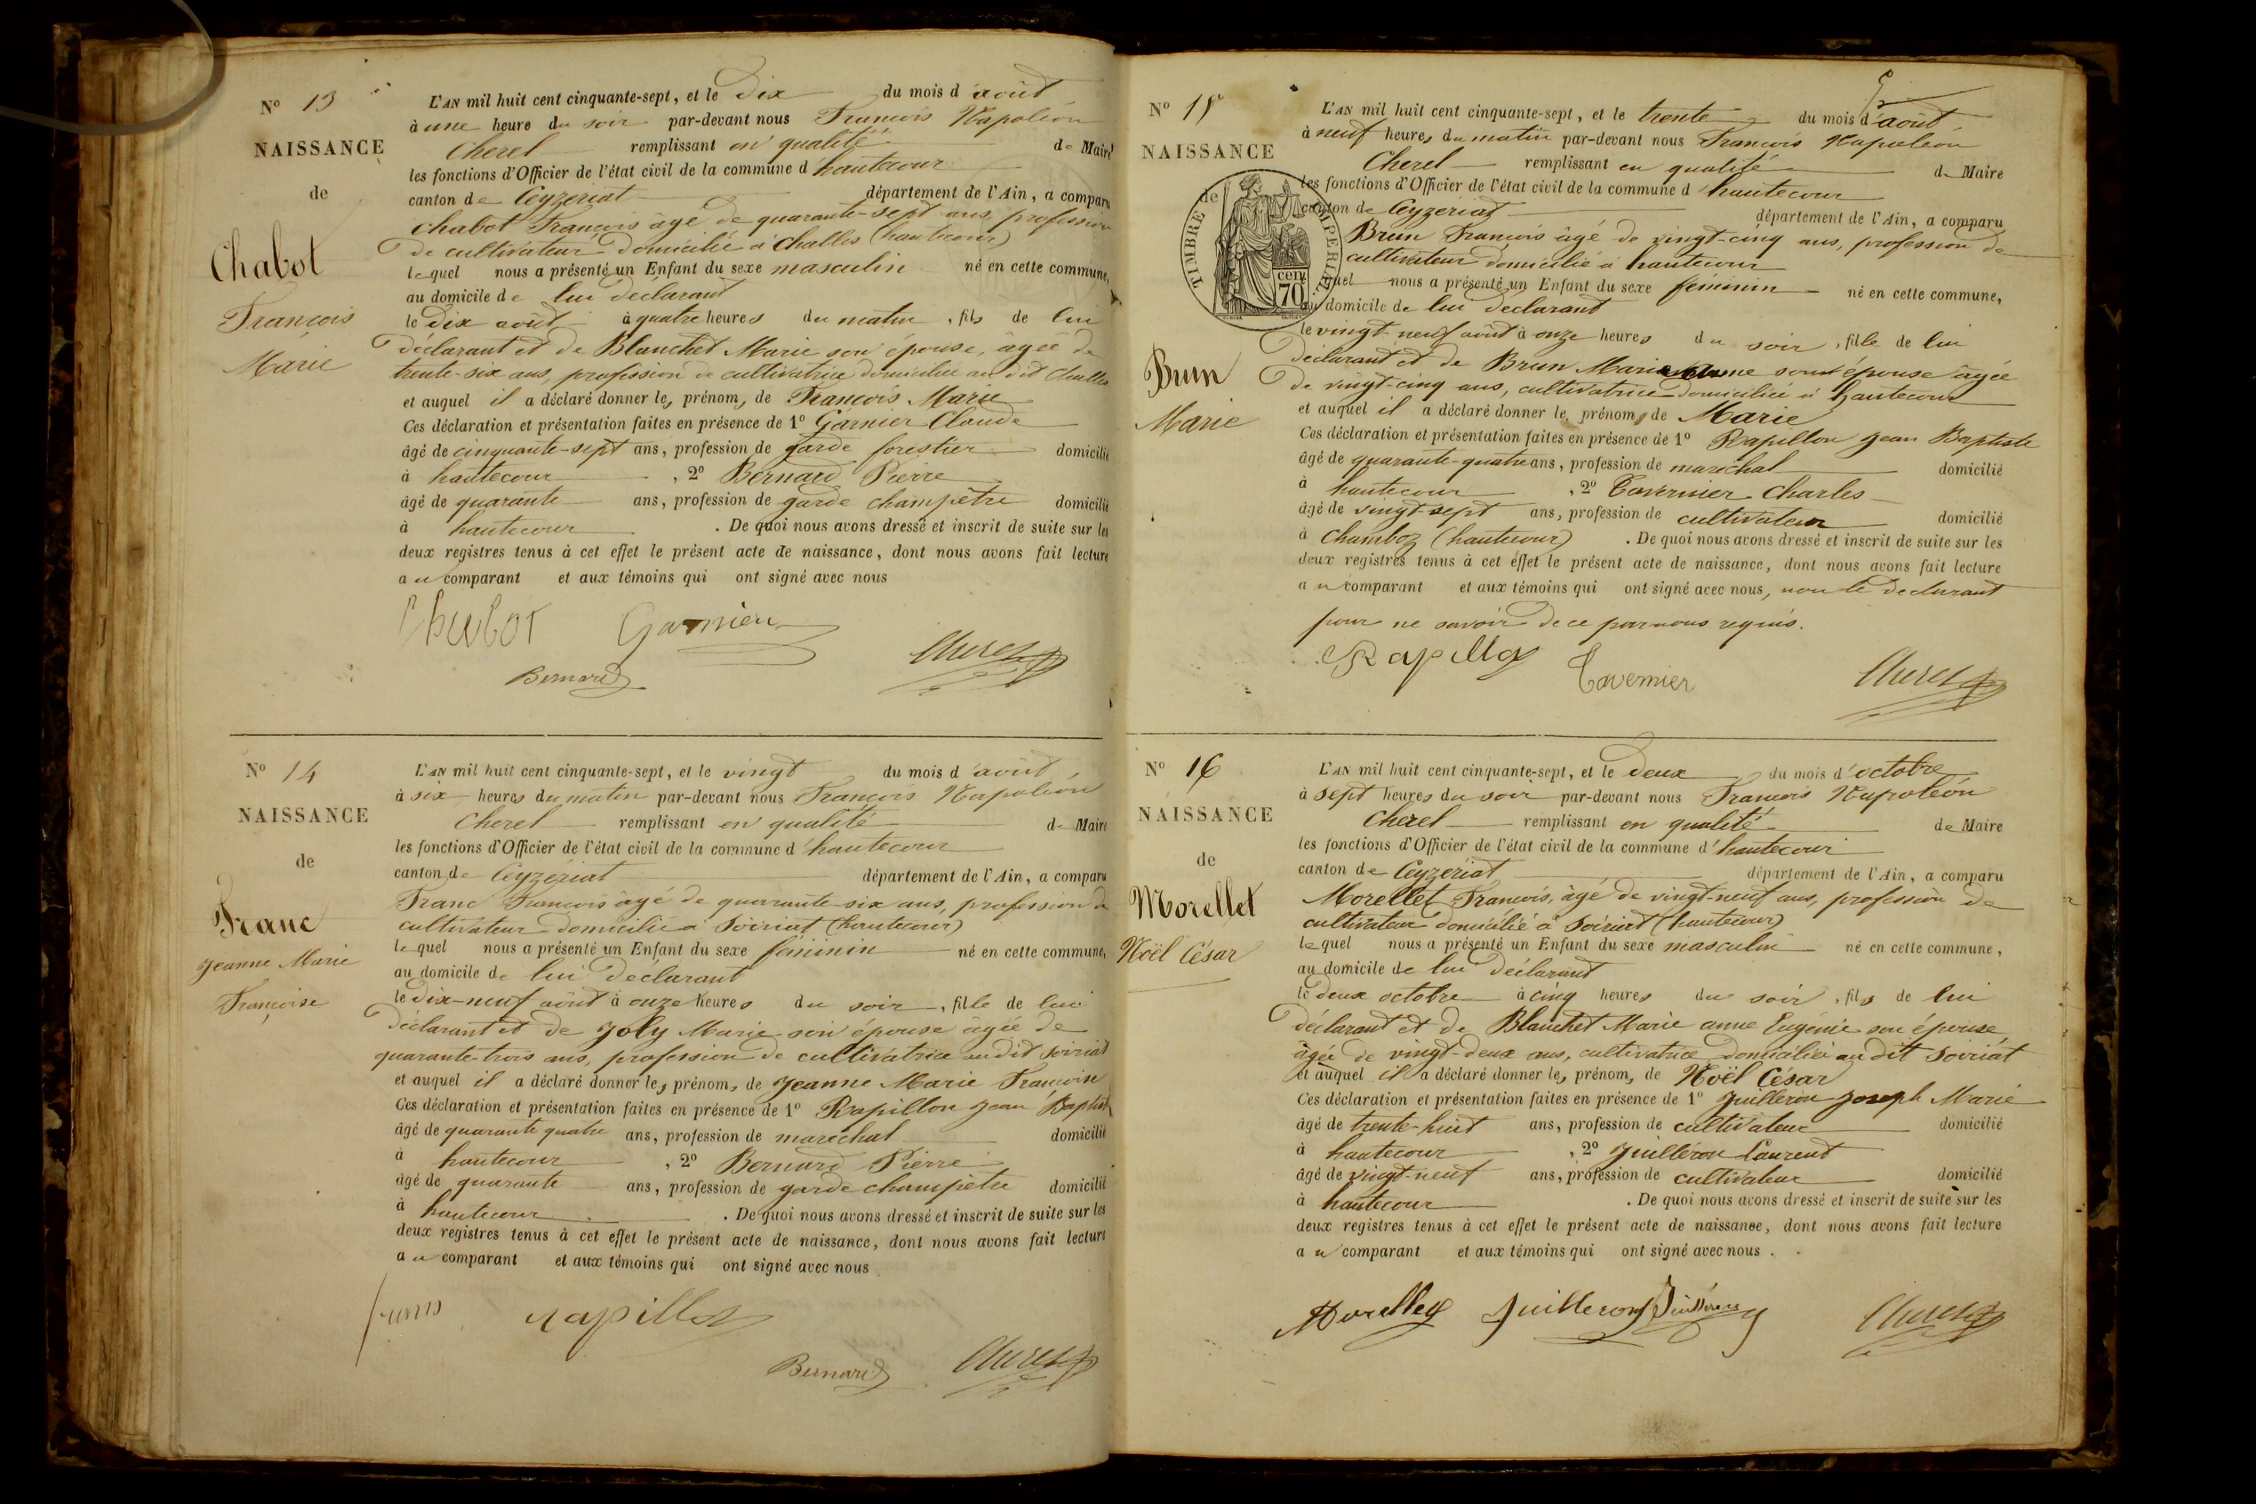 N° 13
NAISSANCE
de
Chabot
François
Marie
L'AN mil huit cent cinquante-sept, et le dix du mois d'août
à une heure du soir par-devant nous François Napoléon
Cherel remplissant en qualité de Maire
les fonctions d'Officier de l'état civil de la commune d'hautecour
canton de Ceyzériat département de l'Ain, a comparu
Chabot François âgé de quarante-sept ans, profession
de cultivateur domicilié à Challes (hautecour)
lequel nous a présenté un Enfant du sexe masculin né en cette commune,
au domicile de lui déclarant
le dix août à quatre heures du matin, fils de lui
déclarant et de Blanchet Marie son épouse, âgée de
trente-six ans, profession de cultivatrice domiciliée au dit Challes
et auquel il a déclaré donner les prénoms de François Marie
Ces déclaration et présentation faites en présence de 1° Garnier Claude
âgé de cinquante-sept ans, profession de garde forestier domicilié
à hautecour, 2° Bernard Pierre
âgé de quarante ans, profession de garde champêtre domicilié
à hautecour. De quoi nous avons dressé et inscrit de suite sur les
deux registres tenus à cet effet le présent acte de naissance, dont nous avons fait lecture
au comparant et aux témoins qui ont signé avec nous
Chabot Garnier
Bernard Cherel
N° 14
NAISSANCE
de
Franc
Jeanne Marie
Françoise
L'AN mil huit cent cinquante-sept, et le vingt du mois d'août
à six heures du matin par-devant nous François Napoléon
Cherel remplissant en qualité de Maire
les fonctions d'Officier de l'état civil de la commune d'hautecour
canton de Ceyzériat département de l'Ain, a comparu
Franc François âgé de quarante-six ans, profession de
cultivateur domicilié à Soiriat (hautecour)
lequel nous a présenté un Enfant du sexe féminin né en cette commune,
au domicile de lui déclarant
le dix-neuf août à onze heures du soir, fille de lui
déclarant et de Joly Marie son épouse âgée de
quarante-trois ans, profession de cultivatrice audit Soiriat
et auquel il a déclaré donner les prénoms de Jeanne Marie Françoise
Ces déclaration et présentation faites en présence de 1° Rapillon Jean Baptiste
âgé de quarante quatre ans, profession de maréchal domicilié
à hautecour, 2° Bernard Pierre
âgé de quarante ans, profession de garde champêtre domicilié
à hautecour. De quoi nous avons dressé et inscrit de suite sur les
deux registres tenus à cet effet le présent acte de naissance, dont nous avons fait lecture
au comparant et aux témoins qui ont signé avec nous
franc Rapillon
Bernard Cherel
5
N° 15
NAISSANCE
de
TIMBRE IMPERIAL
cen. 70
Brun
Marie
L'AN mil huit cent cinquante-sept, et le trente du mois d'août
à neuf heures du matin par-devant nous François Napoléon
Cherel remplissant en qualité de Maire
les fonctions d'Officier de l'état civil de la commune d'hautecour
canton de Ceyzériat département de l'Ain, a comparu
Brun François âgé de vingt-cinq ans, profession de
cultivateur domicilié à hautecour
lequel nous a présenté un Enfant du sexe féminin né en cette commune,
au domicile de lui déclarant
le vingt-neuf août à onze heures du soir, fille de lui
déclarant et de Brun Marie anne son épouse âgée
de vingt-cinq ans, cultivatrice domiciliée à hautecour
et auquel il a déclaré donner le prénom de Marie
Ces déclaration et présentation faites en présence de 1° Rapillon Jean Baptiste
âgé de quarante-quatre ans, profession de maréchal domicilié
à hautecour, 2° Tavernier Charles
âgé de vingt-sept ans, profession de cultivateur domicilié
à Chamboz (hautecour). De quoi nous avons dressé et inscrit de suite sur les
deux registres tenus à cet effet le présent acte de naissance, dont nous avons fait lecture
au comparant et aux témoins qui ont signé avec nous, non le déclarant
pour ne savoir de ce par nous requis.
Rapillon Tavernier Cherel
N° 16
NAISSANCE
de
Morellet
Noël César
L'AN mil huit cent cinquante-sept, et le deux du mois d'octobre
à sept heures du soir par-devant nous François Napoléon
Cherel remplissant en qualité de Maire
les fonctions d'Officier de l'état civil de la commune d'hautecour
canton de Ceyzériat département de l'Ain, a comparu
Morellet François, âgé de vingt-neuf ans, profession de
cultivateur domicilié à Soiriat (hautecour)
lequel nous a présenté un Enfant du sexe masculin né en cette commune,
au domicile de lui déclarant
le deux octobre à cinq heures du soir, fils de lui
déclarant et de Blanchet Marie anne Eugénie son épouse
âgée de vingt-deux ans, cultivatrice domiciliée au dit Soiriat
et auquel il a déclaré donner les prénoms de Noël César
Ces déclaration et présentation faites en présence de 1° Juilleron Joseph Marie
âgé de trente-huit ans, profession de cultivateur domicilié
à hautecour, 2° Juilléron Laurent
âgé de vingt-neuf ans, profession de cultivateur domicilié
à hautecour. De quoi nous avons dressé et inscrit de suite sur les
deux registres tenus à cet effet le présent acte de naissance, dont nous avons fait lecture
au comparant et aux témoins qui ont signé avec nous.
Morellet Juilleron Juilleron Cherel